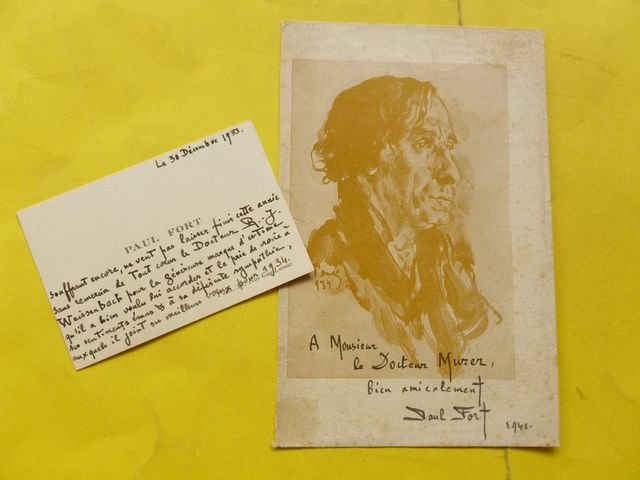 Le 30 Décembre 1933.
PAUL FORT
souffrant encore, ne veut pas laisser finir cette année
sans remercier de tout cœur le Docteur R.-J.
Weissenbach pour la généreuse marque d'estime
qu'il a bien voulu lui accorder et le prie de croire à
ses sentiments émus & à sa déférente sympathie,
auxquels il joint ses meilleurs vœux pour 1934.
Gay-Lussac
A Monsieur
le Docteur Murer,
bien amicalement
Paul Fort
1941.